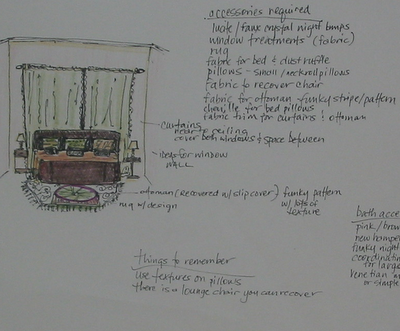 accessories required
lucite/faux crystal night lamps
window treatments (fabric)
rug
fabric for bed & dust ruffle
pillows - small/neckroll pillows
fabric to recover chair
fabric for ottoman - funky stripe/pattern
chenille for bed pillows
fabric trim for curtains & ottoman
curtains
near to ceiling
cover both windows & space between
ideas for window
WALL
ottoman (recovered w/ slipcover) funky pattern
w/ lots of
texture
rug w/ design
things to remember
use textures on pillows
there is a lounge chair you can recover
bath acce
pink/brow
new hamper
funky night
coordinatin
for large
venetian
or simple